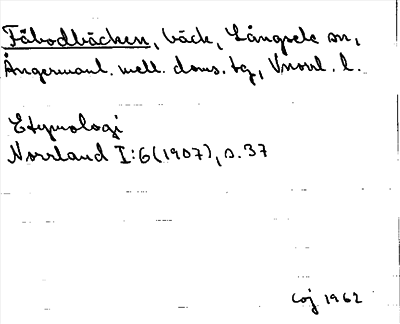 Fäbodbäcken, bäck, Långsele sn,
Ångermanl. mell. doms. tg, Vnorrl. l.
Etymologi
Norrland I:6 (1907), s. 37
CGJ 1962